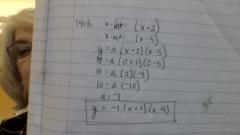 140b. x-int: (x+2)
x-int: (x-5)
y = a (x+2)(x-5)
10 = a (0+2)(0-5)
10 = a (2)(-5)
10 = a (-10)
a = -1
y = -1 (x+2)(x-5)